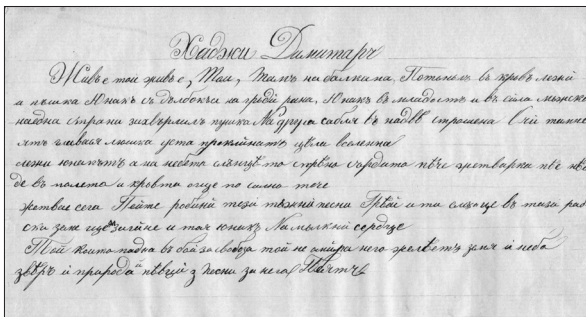 Хаджи Димитаръ
Живъ е той живъ е, Тамъ, Тамъ на балкана, Потоналъ въ кръвь лежи
и пъшка Юнакъ съ дълбока на гърди рана, Юнакъ въ младость и въ сила мъжска
на една страна захвърлилъ пушка На друга сабля въ надвѣ строшена Очи тъмнеятъ глава люшка уста проклинатъ цѣла вселенна
лежи юнакътъ а на небето слънце то спрѣно сърдито пѣе жетварка пѣе нѣй
де въ полето и кръвта още по силно тече
жетва е сега Пейте робини тези тъжни песни Грей и ти слънце въ тази роб
ска земя ще загине и тоя юнакъ Но млъкни сердце
Той който падна въ бой за свобода той не умира него жалеятъ земя и небо
звѣръ и природа и пѣвци песни за него Пеятъ